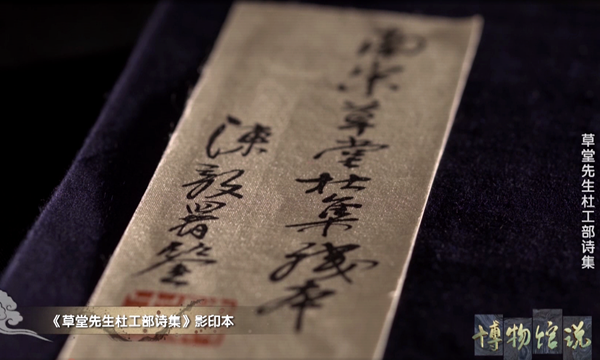 南宋草堂杜集残本
陈毅署签
草堂先生杜工部诗集
《草堂先生杜工部诗集》影印本
博物馆说